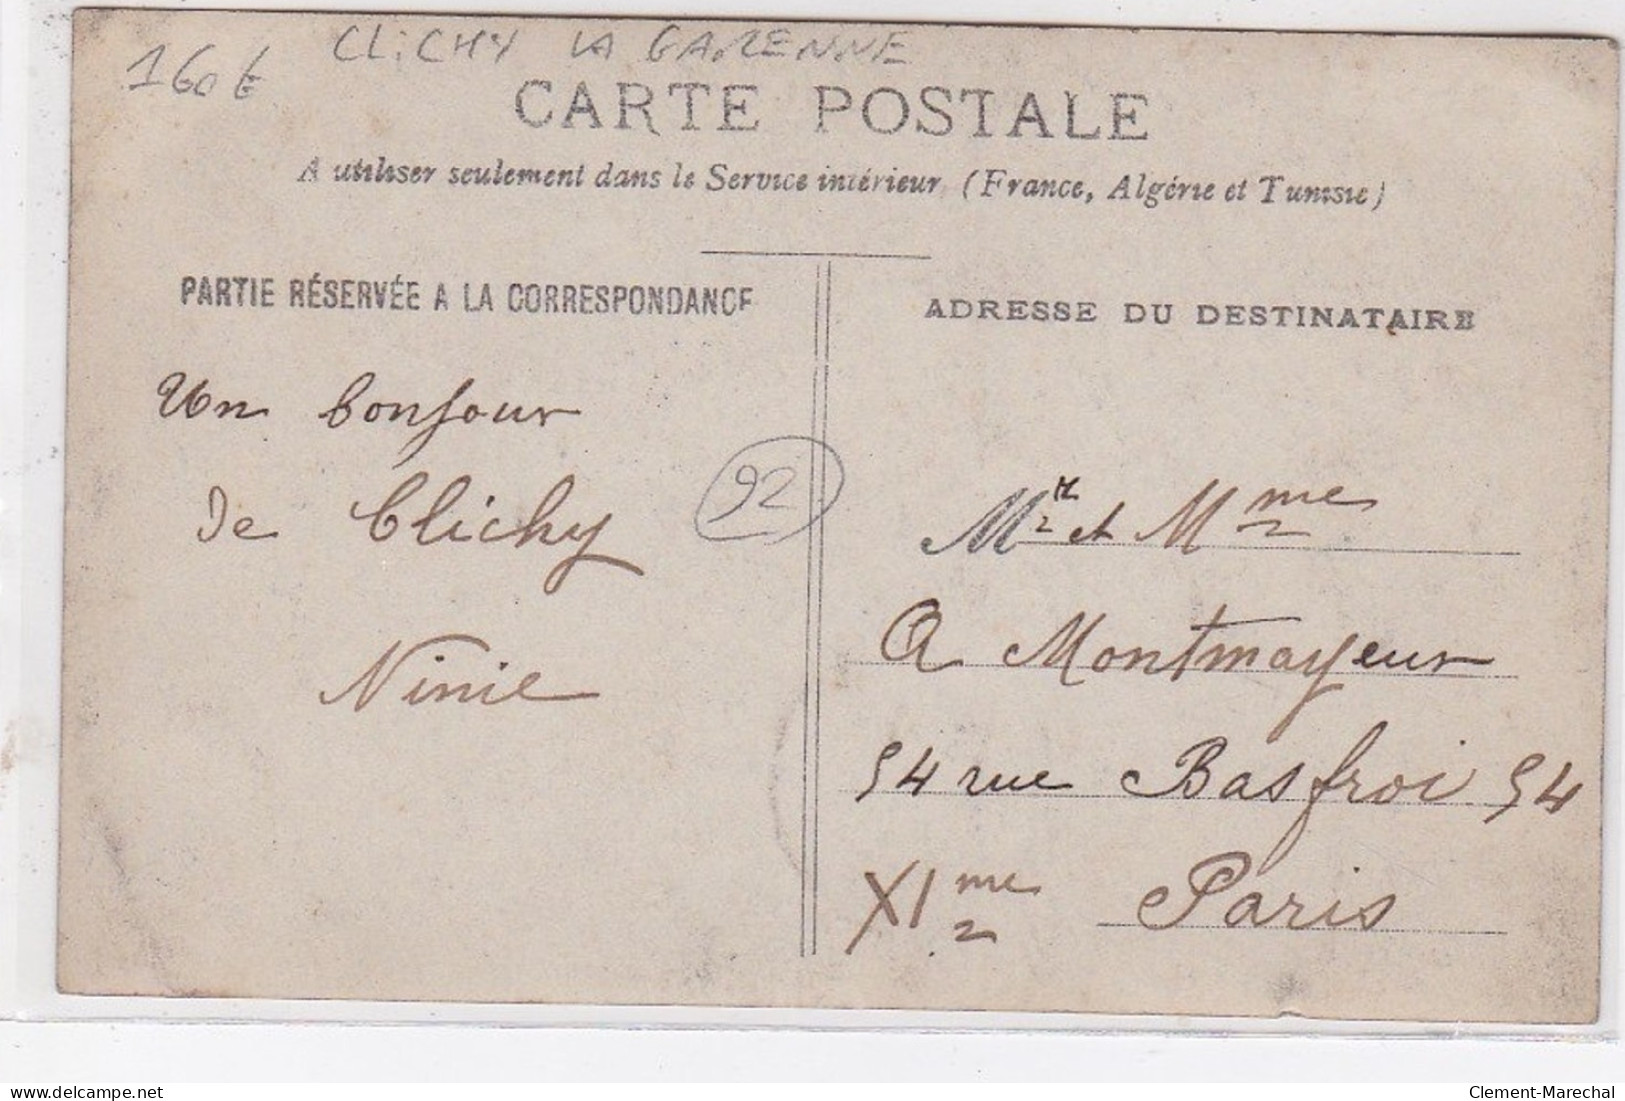 160€
CLiCHY LA GARENNE
CARTE POSTALE
A utiliser seulement dans le Service intérieur (France, Algérie et Tunisie)
PARTIE RÉSERVÉE A LA CORRESPONDANCE
Un bonjour
de Clichy
Ninie
92
ADRESSE DU DESTINATAIRE
Mr et Mme
A Montmayeur
54 rue Basfroi 54
XIme Paris
delcampe.net
Clement-Marechal